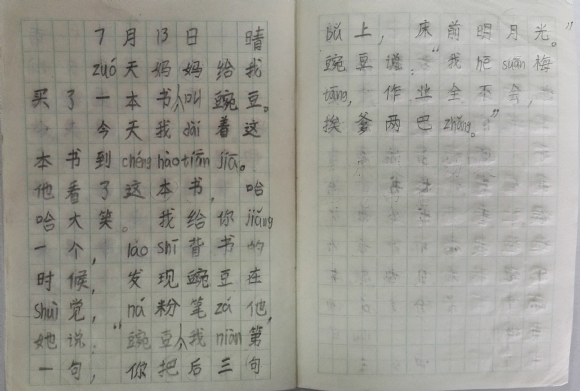 7月13日 晴
zuó天妈妈给我
买了一本书,叫豌豆。
今天我dài着这
本书到chéng hào tiān jiā。
他看了这本书,哈
哈大笑。我给你jiǎng
一个,lǎo shī背书的
时候,发现豌豆在
shuì觉,ná粉笔zá他,
她说:"豌豆,我niàn第
一句,你把后三句
bǔ上,床前明月光。"
豌豆说:"我hē suān梅
tāng,作业全不会,
挨爹两巴zhǎng。"